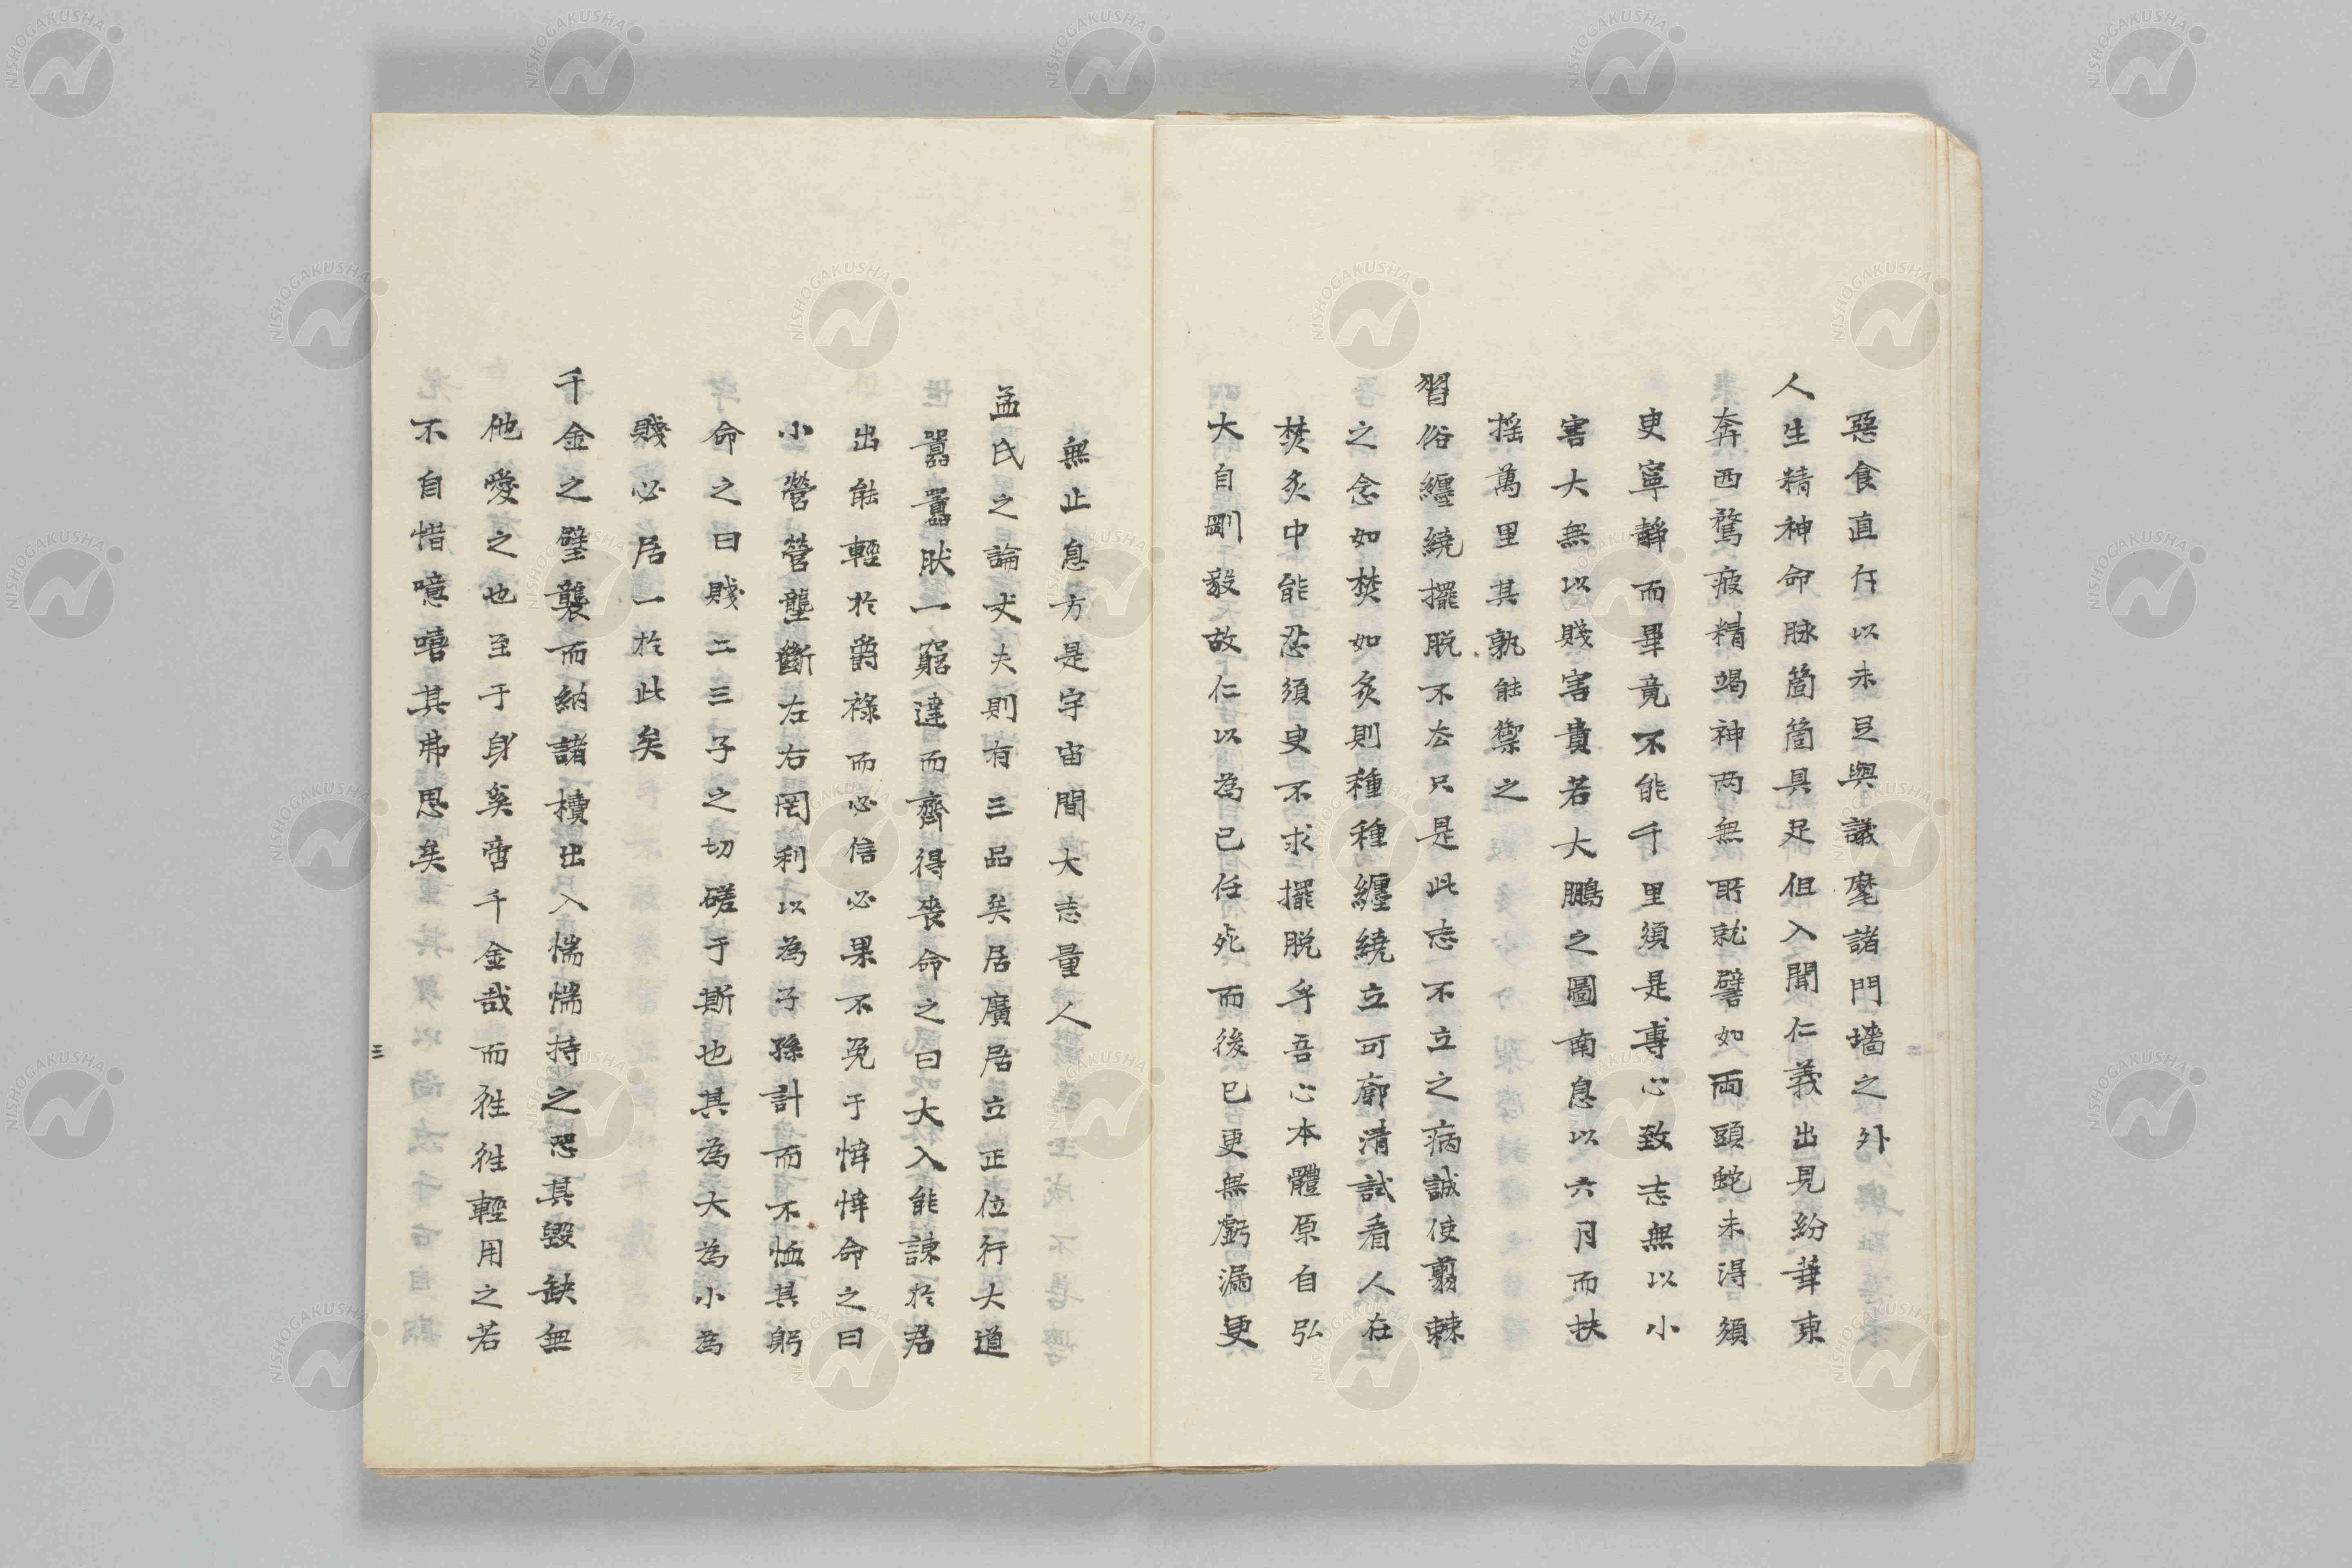 惡食直斥以未足與議麾諸門墻之外
人生精神命脉箇箇具足但入聞仁義出見紛華東
奔西騖疲精竭神兩無所就譬如兩頭蛇未得須
臾寧靜而畢竟不能千里須是專心致志無以小
害大無以賤害貴若大鵬之圖南息以六月而扶
搖萬里其孰能禦之
習俗纏繞擺脱不去只是此志不立之病誠使翦棘
之念如焚如炙則種種纏繞立可廓清試看人在
焚炙中能忍須臾不求擺脱乎吾心本體原自弘
大自剛毅故仁以為己任死而後已更無虧漏更
無止息方是宇宙間大志量人
孟氏之論丈夫則有三品矣居廣居立正位行大道
囂囂肰一窮達而齊得喪命之曰大入能諫於君
出能輕於爵祿而必信必果不免于悻悻命之曰
小營營壟斷左右罔利以為子孫計而不恤其躬
命之曰賤二三子之切磋于斯也其為大為小為
賤必居一於此矣
千金之璧襲而納諸櫝出入惴惴持之恐其毀缺無
他愛之也至于身奚啻千金哉而往往輕用之若
不自惜噫嘻其弗思矣
二
三
NISHOGAKUSHA